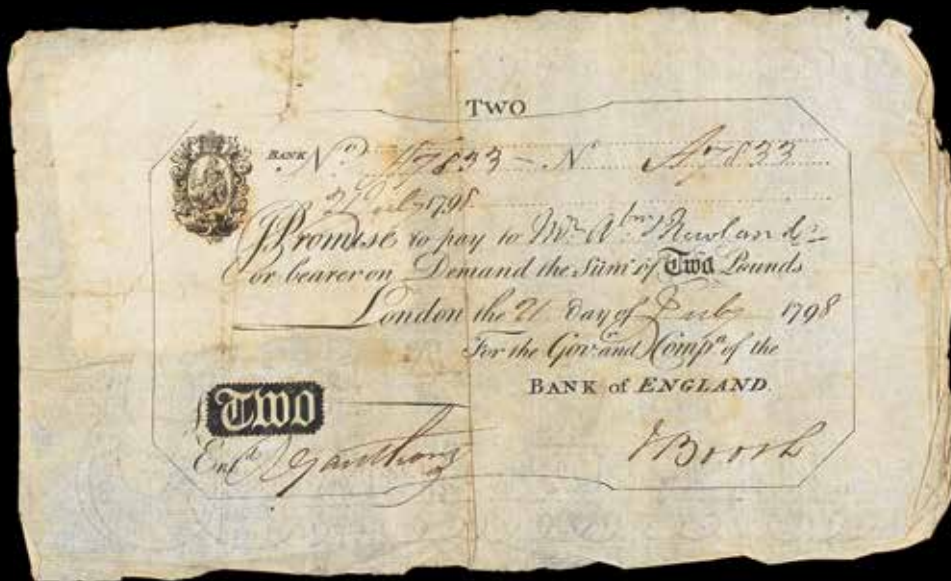 TWO
BANK No 7833 - No 7833
July 1798
I Promise to pay to Mr Abm Newland
or bearer on Demand the Sum of Two Pounds
London the 21 day of July 1798
For the Govr and Compa of the
BANK of ENGLAND.
£ TWO
Entd